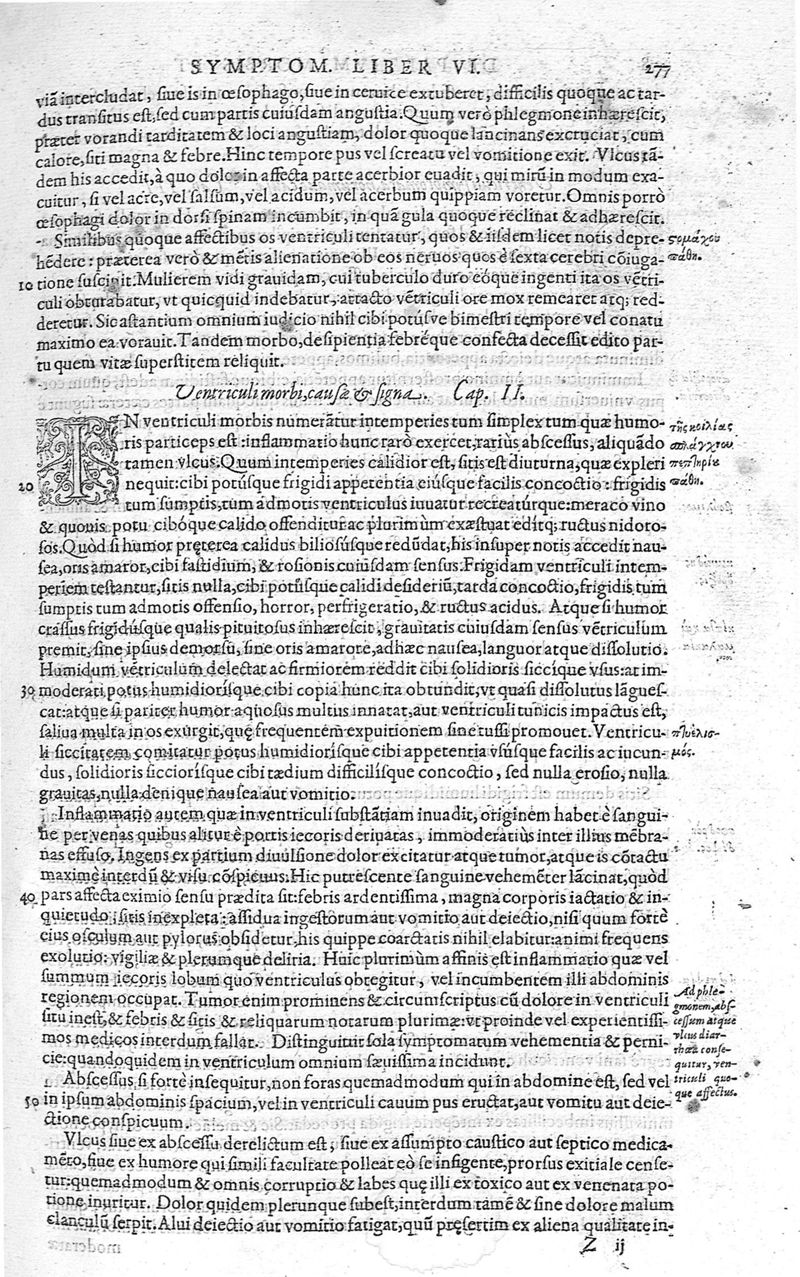 SYMPTOM. LIBER VI. 277
viā intercludat, siue is in œsophago, siue in ceruice extuberet, difficilis quoque ac tar-
dus transitus est, sed cum partis cuiusdam angustia: Quum verò phlegmone inhærescit,
præter vorandi tarditatem & loci angustiam, dolor quoque lancinans excruciat, cum
calore, siti magna & febre. Hinc tempore pus vel screatu vel vomitione exit. Vlcus tā-
dem his accedit, à quo dolor in affecta parte acerbior euadit, qui mirū in modum exa-
cuitur, si vel acre, vel salsum, vel acidum, vel acerbum quippiam voretur. Omnis porrò
œsophagi dolor in dorsi spinam incumbit, in quā gula quoque reclinat & adhærescit.
Similibus quoque affectibus os ventriculi tentatur, quos & iisdem licet notis depre-
στομάχου
hēdere: præterea verò & mētis alienatione ob eos neruos quos è sexta cerebri cōiuga-
πάθη.
10 tione suscipit: Mulierem vidi grauidam, cui tuberculo duro eóque ingenti ita os vētri-
culi obturabatur, vt quicquid indebatur, attacto vētriculi ore mox remearet atq; red-
deretur. Sic astantium omnium iudicio nihil cibi potúsve bimestri tempore vel conatu
maximo ea vorauit. Tandem morbo, desipientia febréque confecta decessit edito par-
tu quem vitæ superstitem reliquit.
Ventriculi morbi, causæ & signa. Cap. II.
IN ventriculi morbis numerātur intemperies tum simplex tum quæ humo-
τῆς κοιλίας
ris particeps est: inflammatio hunc rarò exercet, rarius abscessus, aliquādo
σπλάγχνου
tamen vlcus: Quum intemperies calidior est, sitis est diuturna, quæ expleri
nequit: cibi potúsque frigidi appetentia eiúsque facilis concoctio: frigidis
πάθη.
20
tum sumptis, tum admotis ventriculus iuuatur recreatúrque: meraco vino
& quouis potu cibóque calido offenditur ac plurimùm exæstuat editq; ructus nidoro-
sos. Quòd si humor pręterea calidus biliosúsque redūdat, his insuper notis accedit nau-
sea, oris amaror, cibi fastidium, & rosionis cuiusdam sensus. Frigidam vētriculi intem-
periem testantur, sitis nulla, cibi potúsque calidi desideriū, tarda concoctio, frigidis tum
sumptis tum admotis offensio, horror, perfrigeratio, & ructus acidus. Atque si humor
crassus frigidúsque qualis pituitosus inhærescit, grauitatis cuiusdam sensus vētriculum
premit, sine ipsius demorsu, sine oris amarore, adhæc nausea, languor atque dissolutio.
Humidum vētriculum delectat ac firmiorem reddit cibi solidioris siccíque vsus: at im-
30 moderati potus humidiorísque cibi copia hunc ita obtundit, vt quasi dissolutus lāgues-
cat: atque si pariter humor aquosus multus innatat, aut ventriculi tunicis impactus est,
saliua multa in os exurgit, quę frequentem expuitionem sine tussi promouet. Ventricu-
πτυελισ-
li siccitatem comitatur potus humidiorísque cibi appetentia vsúsque facilis ac iucun-
μός.
dus, solidioris sicciorísque cibi tædium difficilísque concoctio, sed nulla erosio, nulla
grauitas, nulla denique nausea aut vomitio.
Inflammatio autem quæ in ventriculi substātiam inuadit, originem habet è sangui-
ne per venas quibus alitur è portis iecoris deriuatas, immoderatiùs inter illius mēbra-
nas effuso. Ingens ex partium diuulsione dolor excitatur atque tumor, atque is cōtactu
maximè interdū & visu cōspicuus: Hic putrescente sanguine vehemēter lācinat, quòd
40 pars affecta eximio sensu prædita sit: febris ardentissima, magna corporis iactatio & in-
quietudo, sitis inexpleta: assidua ingestorum aut vomitio aut deiectio, nisi quum fortè
eius osculum aut pylorus obsidetur, his quippe coarctatis nihil elabitur: animi frequens
exolutio: vigiliæ & plerumque deliria. Huic plurimùm affinis est inflammatio quæ vel
summum iecoris lobum quo ventriculus obtegitur, vel incumbentem illi abdominis
regionem occupat. Tumor enim prominens & circumscriptus cū dolore in ventriculi
Ad phle-
situ inest, & febris & sitis & reliquarum notarum plurimæ: vt proinde vel experientissi-
gmonem, abs-
cessum atque
mos medicos interdum fallat. Distinguitur sola symptomatum vehementia & perni-
vlcus diar-
rhœa conse-
cie: quandoquidem in ventriculum omnium sæuissima incidunt.
quitur, ven-
Abscessus si fortè insequitur, non foras quemadmodum qui in abdomine est, sed vel
triculi quo-
50 in ipsum abdominis spacium, vel in ventriculi cauum pus eructat, aut vomitu aut deie-
que affectus.
ctione conspicuum.
Vlcus siue ex abscessu derelictum est, siue ex assumpto caustico aut septico medica-
mēto, siue ex humore qui simili facultate polleat eò se infigente, prorsus exitiale cense-
tur: quemadmodum & omnis corruptio & labes quę illi ex toxico aut ex venenata po-
tione inuritur. Dolor quidem plerunque subest, interdum tamē & sine dolore malum
clanculū serpit. Alui deiectio aut vomitio fatigat, quū pręsertim ex aliena qualitate in-
Z ij